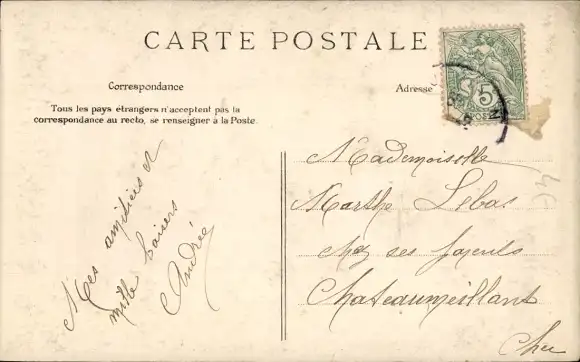 CARTE POSTALE
Correspondance
Adresse
Tous les pays étrangers n'acceptent pas la
correspondance au recto, se renseigner à la Poste.
5
POSTES
Mes amitiés et
mille baisers
Andrée
Mademoiselle
Marthe Lebas
chez ses parents
Chateaumeillant
Cher